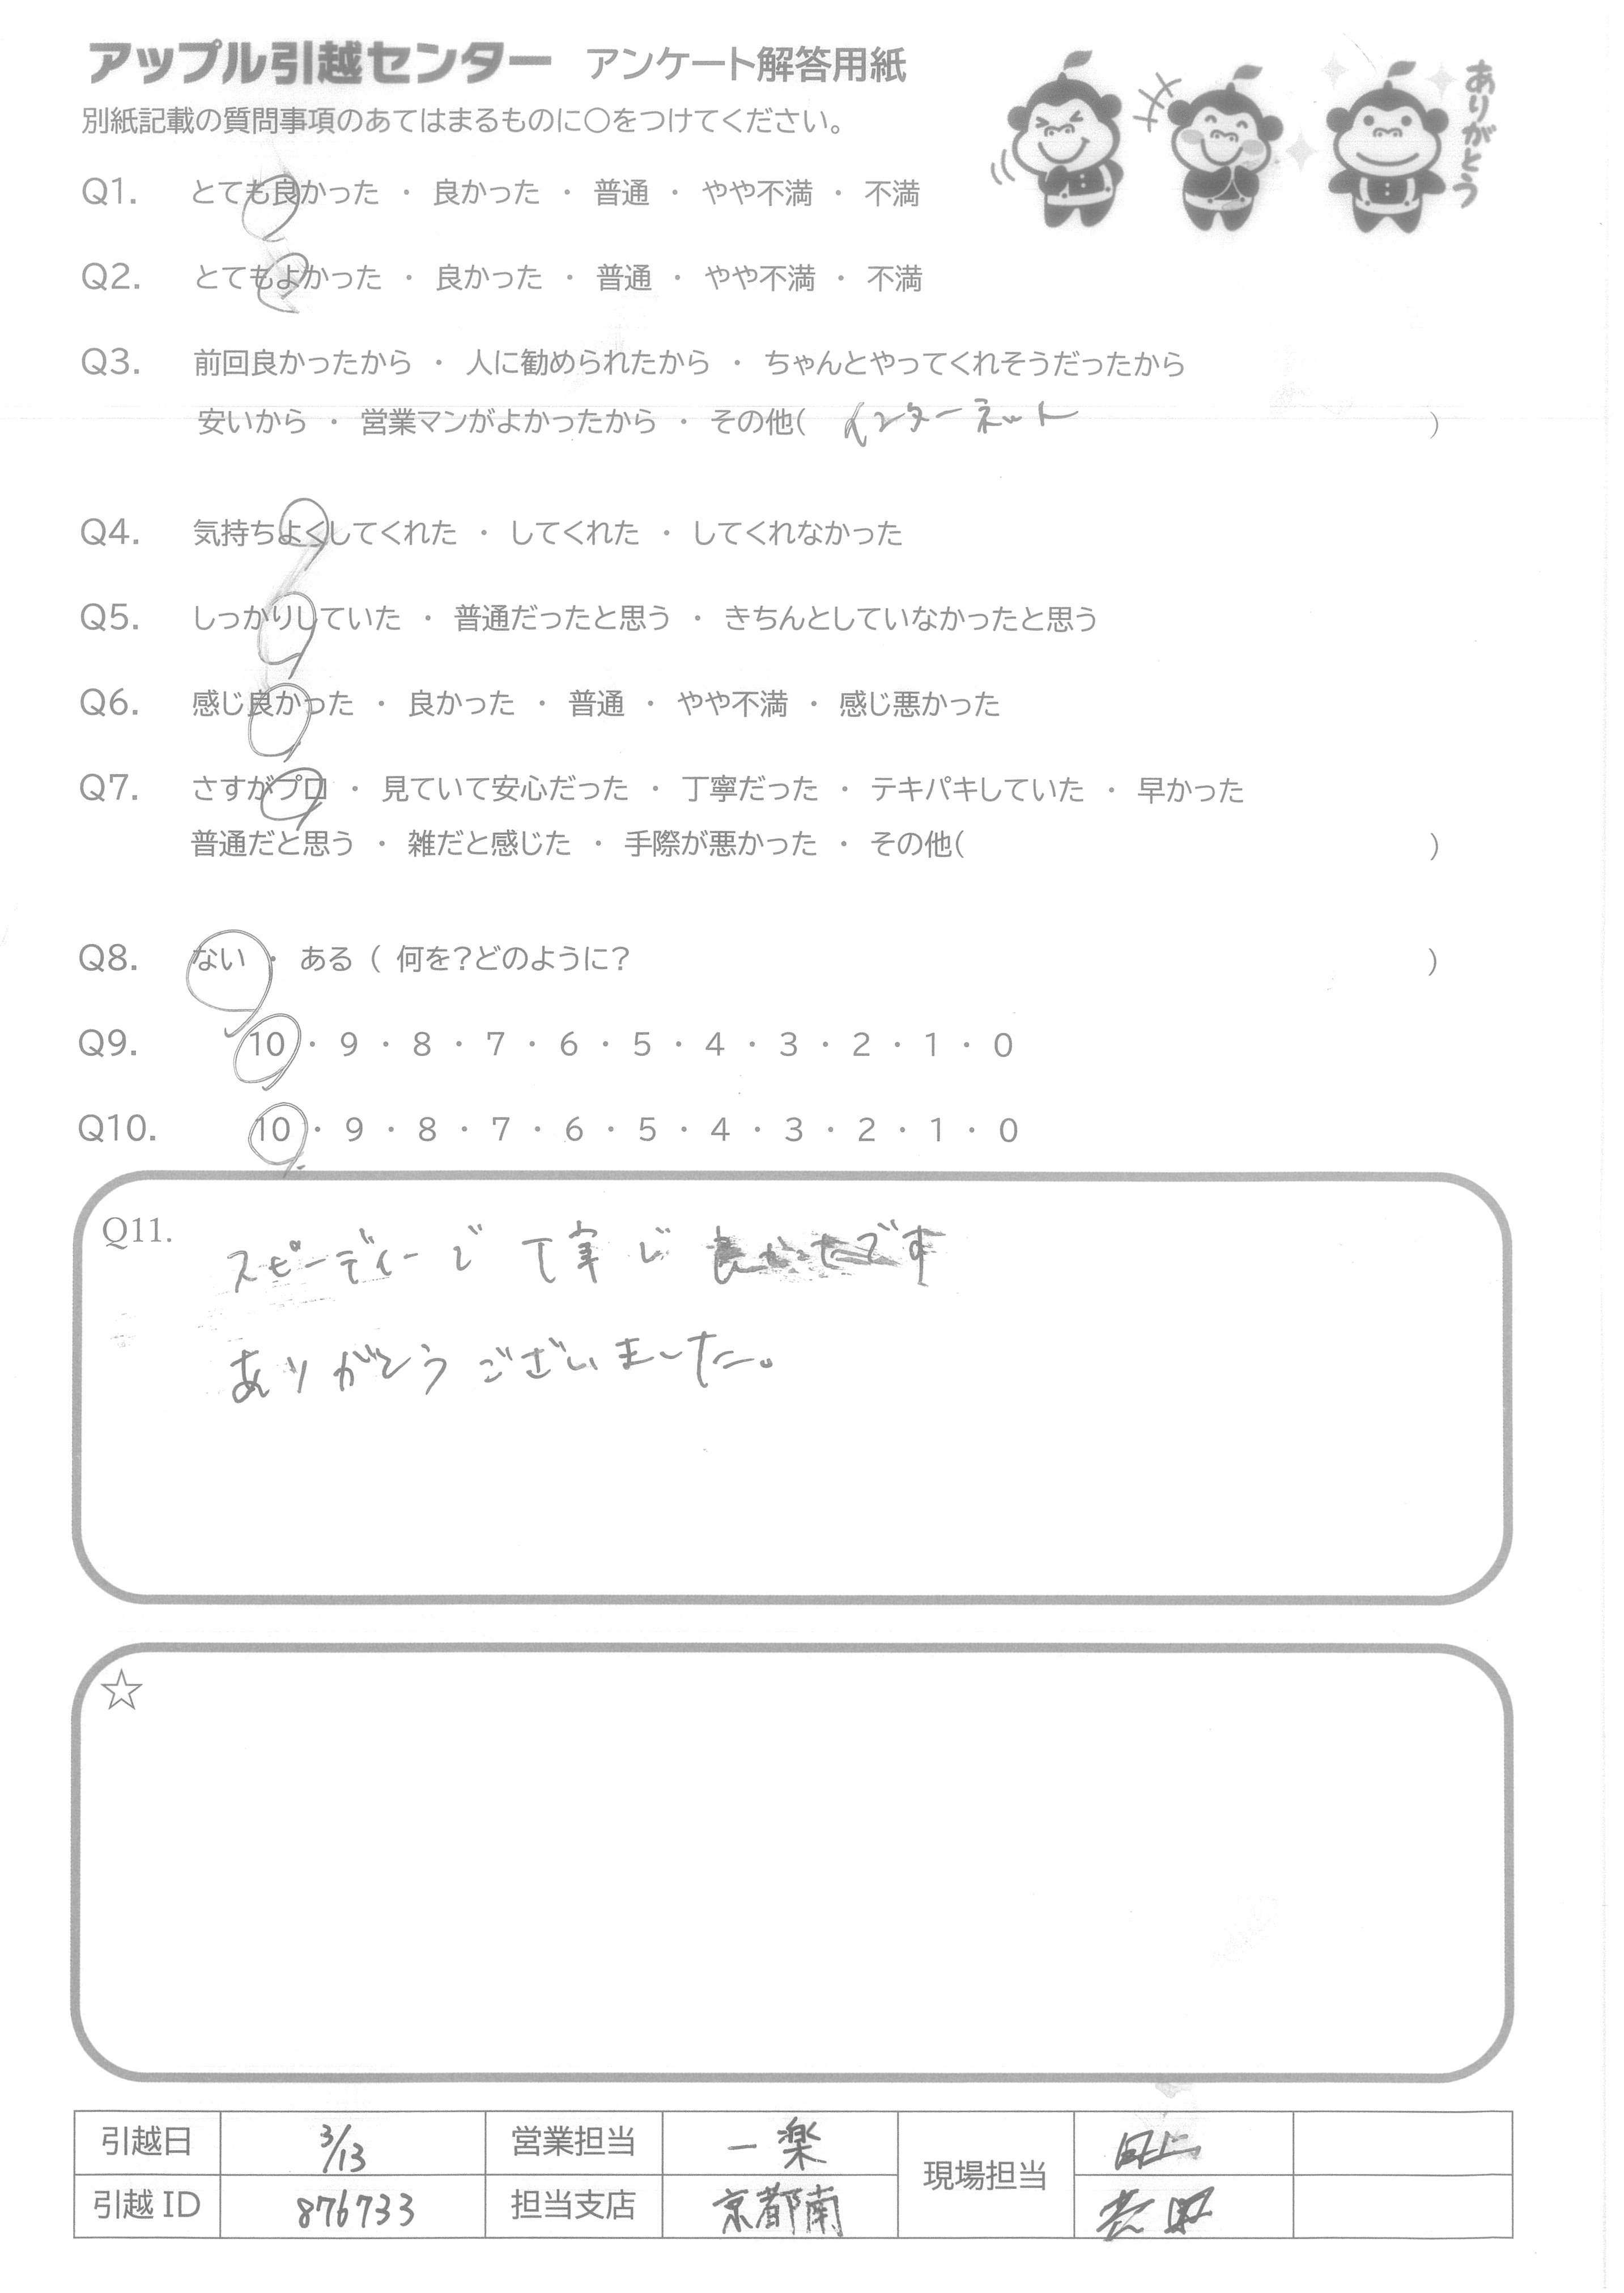 アップル引越センター アンケート解答用紙
別紙記載の質問事項のあてはまるものに○をつけてください。
ありがとう
Q1. とても良かった ・ 良かった ・ 普通 ・ やや不満 ・ 不満
Q2. とてもよかった ・ 良かった ・ 普通 ・ やや不満 ・ 不満
Q3. 前回良かったから ・ 人に勧められたから ・ ちゃんとやってくれそうだったから
安いから ・ 営業マンがよかったから ・ その他( インターネット )
Q4. 気持ちよくしてくれた ・ してくれた ・ してくれなかった
Q5. しっかりしていた ・ 普通だったと思う ・ きちんとしていなかったと思う
Q6. 感じ良かった ・ 良かった ・ 普通 ・ やや不満 ・ 感じ悪かった
Q7. さすがプロ ・ 見ていて安心だった ・ 丁寧だった ・ テキパキしていた ・ 早かった
普通だと思う ・ 雑だと感じた ・ 手際が悪かった ・ その他( )
Q8. ない ・ ある ( 何を？どのように？ )
Q9. 10 ・ 9 ・ 8 ・ 7 ・ 6 ・ 5 ・ 4 ・ 3 ・ 2 ・ 1 ・ 0
Q10. 10 ・ 9 ・ 8 ・ 7 ・ 6 ・ 5 ・ 4 ・ 3 ・ 2 ・ 1 ・ 0
Q11. スピーディーで 丁寧で 良かったです
ありがとうございました。
☆
引越日 3/13 営業担当 一楽 現場担当
引越 ID 876733 担当支店 京都南